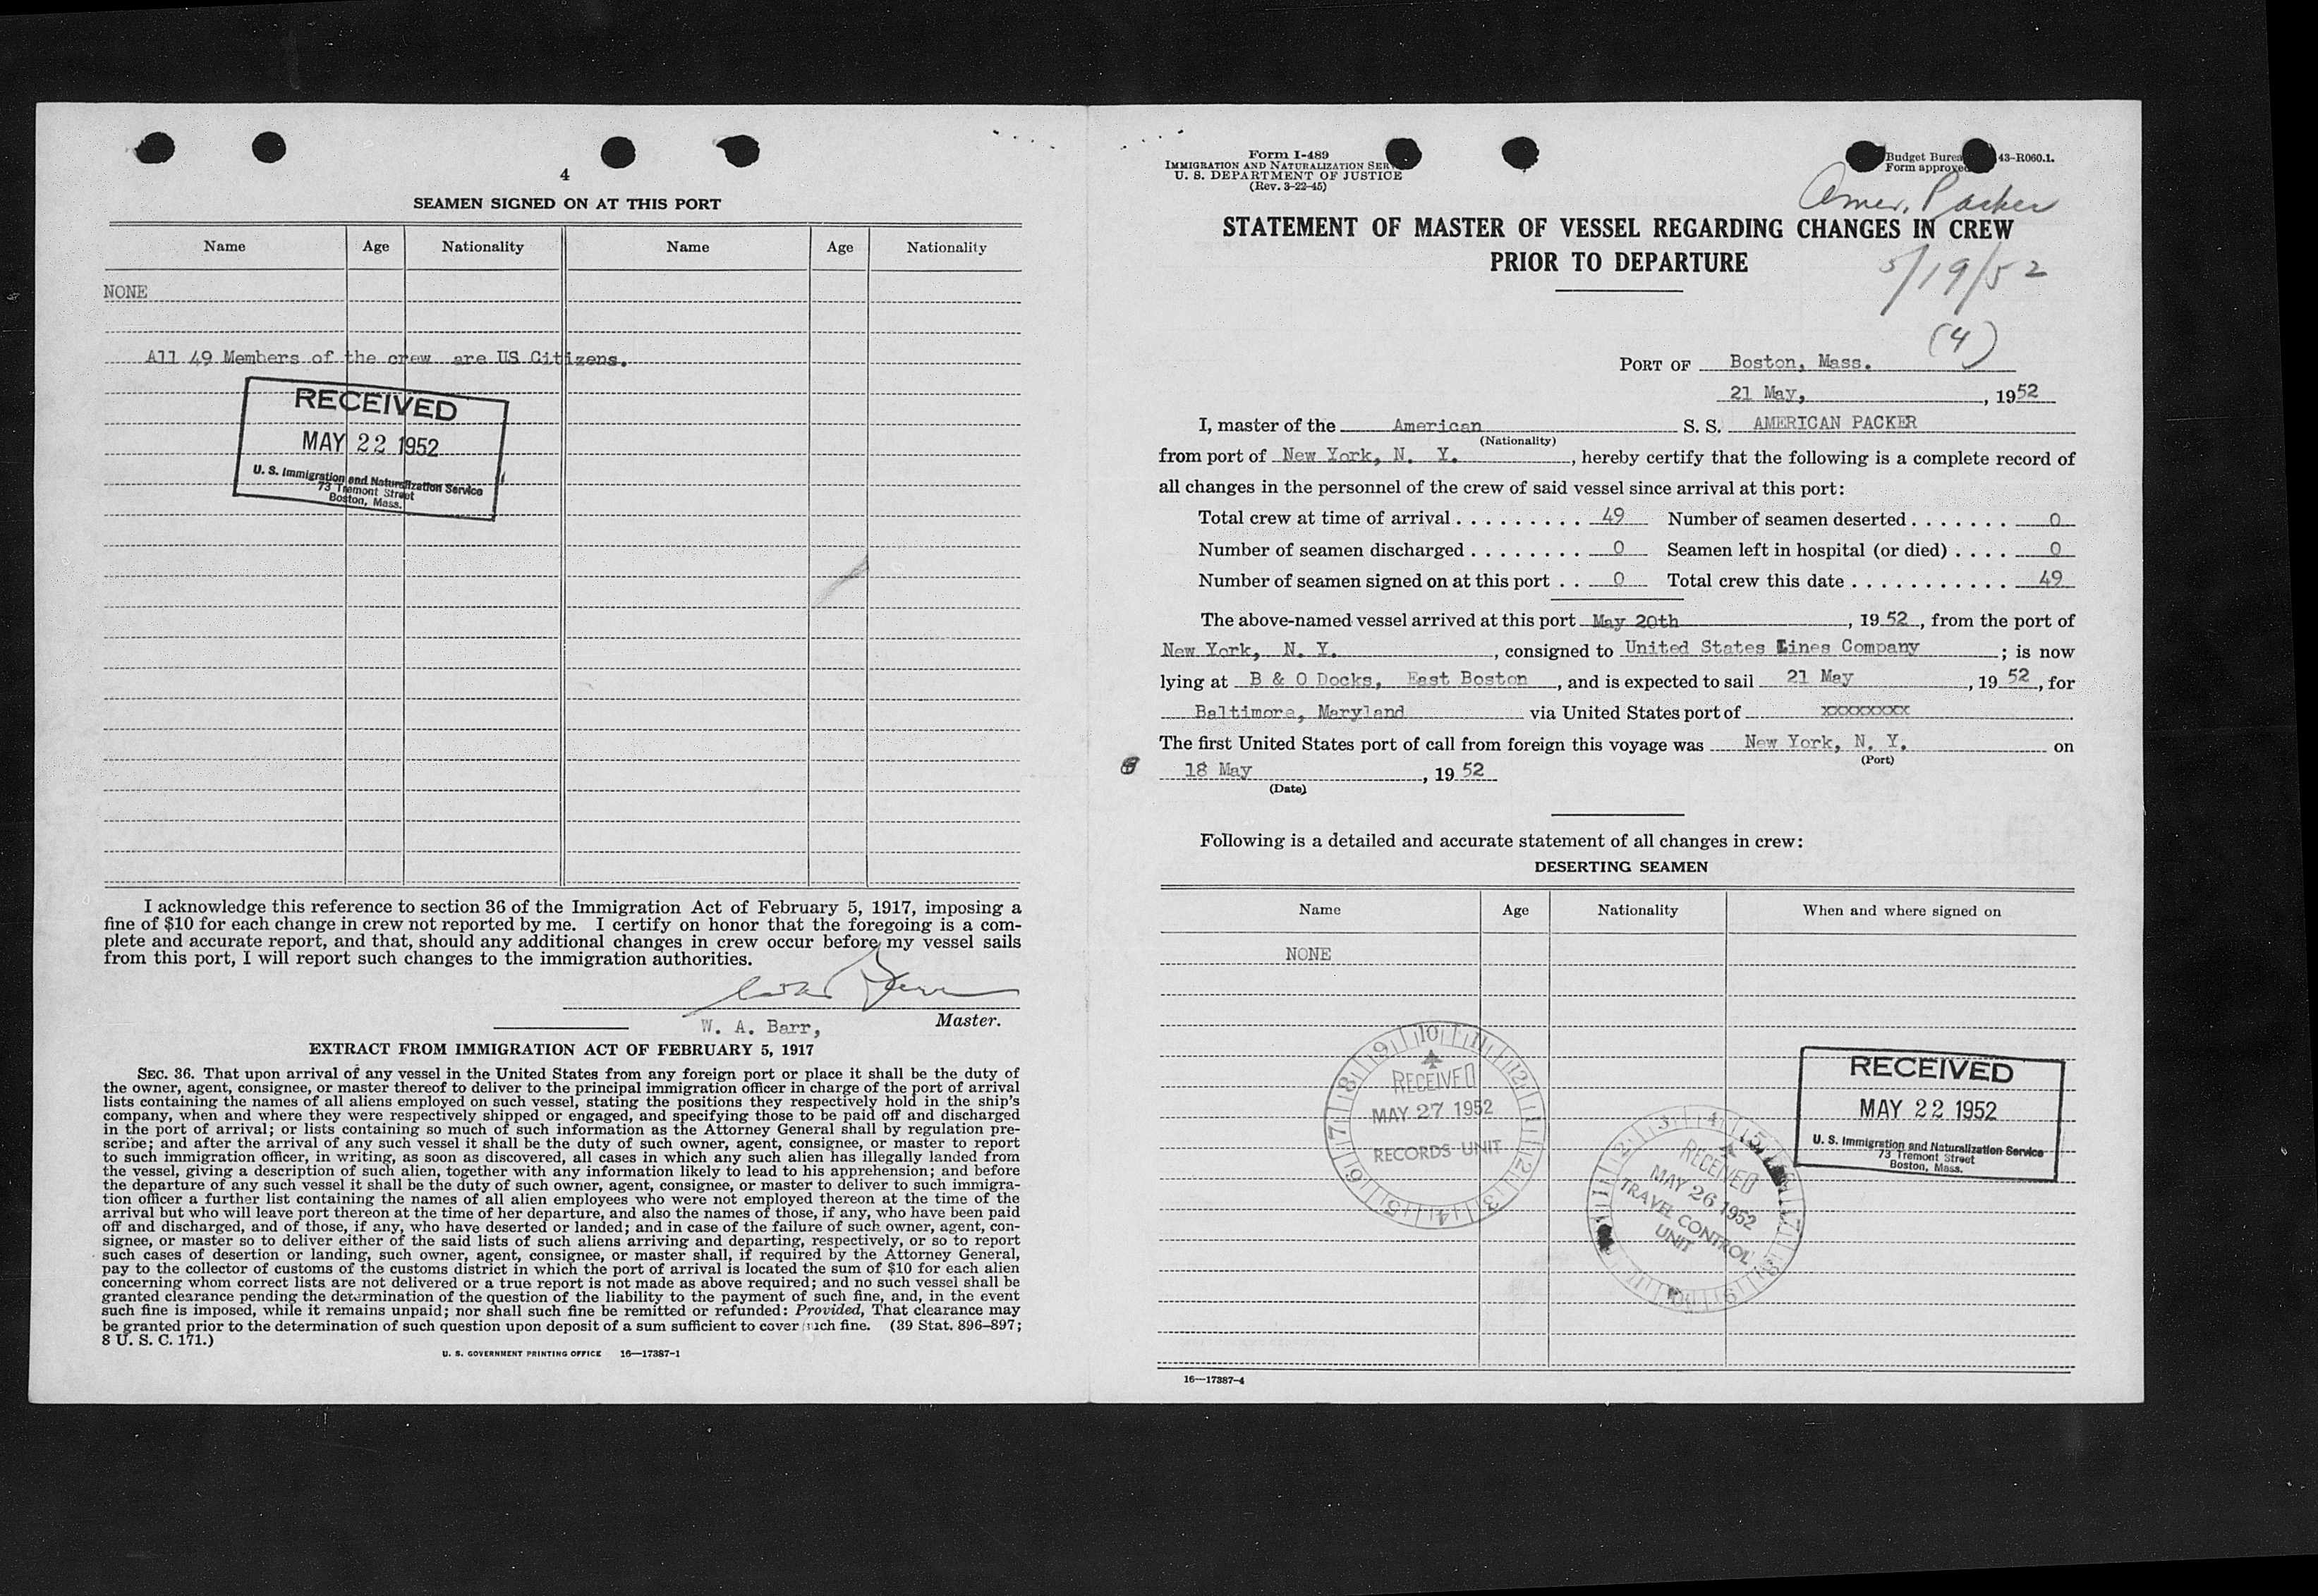 4
SEAMEN SIGNED ON AT THIS PORT
Name Age Nationality Name Age Nationality
NONE
All 49 Members of the crew are US Citizens.
RECEIVED
MAY 22 1952
U. S. Immigration and Naturalization Service
73 Tremont Street
Boston, Mass.
I acknowledge this reference to section 36 of the Immigration Act of February 5, 1917, imposing a
fine of $10 for each change in crew not reported by me. I certify on honor that the foregoing is a com-
plete and accurate report, and that, should any additional changes in crew occur before my vessel sails
from this port, I will report such changes to the immigration authorities.
W. A. Barr, Master.
EXTRACT FROM IMMIGRATION ACT OF FEBRUARY 5, 1917
SEC. 36. That upon arrival of any vessel in the United States from any foreign port or place it shall be the duty of
the owner, agent, consignee, or master thereof to deliver to the principal immigration officer in charge of the port of arrival
lists containing the names of all aliens employed on such vessel, stating the positions they respectively hold in the ship's
company, when and where they were respectively shipped or engaged, and specifying those to be paid off and discharged
in the port of arrival; or lists containing so much of such information as the Attorney General shall by regulation pre-
scribe; and after the arrival of any such vessel it shall be the duty of such owner, agent, consignee, or master to report
to such immigration officer, in writing, as soon as discovered, all cases in which any such alien has illegally landed from
the vessel, giving a description of such alien, together with any information likely to lead to his apprehension; and before
the departure of any such vessel it shall be the duty of such owner, agent, consignee, or master to deliver to such immigra-
tion officer a further list containing the names of all alien employees who were not employed thereon at the time of the
arrival but who will leave port thereon at the time of her departure, and also the names of those, if any, who have been paid
off and discharged, and of those, if any, who have deserted or landed; and in case of the failure of such owner, agent, con-
signee, or master so to deliver either of the said lists of such aliens arriving and departing, respectively, or so to report
such cases of desertion or landing, such owner, agent, consignee, or master shall, if required by the Attorney General,
pay to the collector of customs of the customs district in which the port of arrival is located the sum of $10 for each alien
concerning whom correct lists are not delivered or a true report is not made as above required; and no such vessel shall be
granted clearance pending the determination of the question of the liability to the payment of such fine, and, in the event
such fine is imposed, while it remains unpaid; nor shall such fine be remitted or refunded: Provided, That clearance may
be granted prior to the determination of such question upon deposit of a sum sufficient to cover such fine. (39 Stat. 896–897;
8 U. S. C. 171.)
U. S. GOVERNMENT PRINTING OFFICE 16—17387-1
Form I-489
IMMIGRATION AND NATURALIZATION SER
U. S. DEPARTMENT OF JUSTICE
(Rev. 3-22-45)
Budget Burea 43-R060.1.
Form approved
Amer. Packer
STATEMENT OF MASTER OF VESSEL REGARDING CHANGES IN CREW
PRIOR TO DEPARTURE
5/19/52
(4)
PORT OF Boston, Mass.
21 May, , 1952
I, master of the American S. S. AMERICAN PACKER
(Nationality)
from port of New York, N. Y. , hereby certify that the following is a complete record of
all changes in the personnel of the crew of said vessel since arrival at this port:
Total crew at time of arrival . . . . . . . . . 49 Number of seamen deserted . . . . . . . 0
Number of seamen discharged . . . . . . . . 0 Seamen left in hospital (or died) . . . . 0
Number of seamen signed on at this port . . 0 Total crew this date . . . . . . . . . . . 49
The above-named vessel arrived at this port May 20th , 19 52 , from the port of
New York, N. Y. , consigned to United States Lines Company ; is now
lying at B & O Docks, East Boston , and is expected to sail 21 May , 19 52 , for
Baltimore, Maryland via United States port of xxxxxxxx .
The first United States port of call from foreign this voyage was New York, N. Y. on
(Port)
18 May , 19 52
(Date)
Following is a detailed and accurate statement of all changes in crew:
DESERTING SEAMEN
Name Age Nationality When and where signed on
NONE
10 11 12 1 2 3 4 5 6 7 8 9
RECEIVED
MAY 27 1952
RECORDS UNIT
RECEIVED
MAY 26 1952
TRAVEL CONTROL
UNIT
RECEIVED
MAY 22 1952
U. S. Immigration and Naturalization Service
73 Tremont Street
Boston, Mass.
16—17387-4